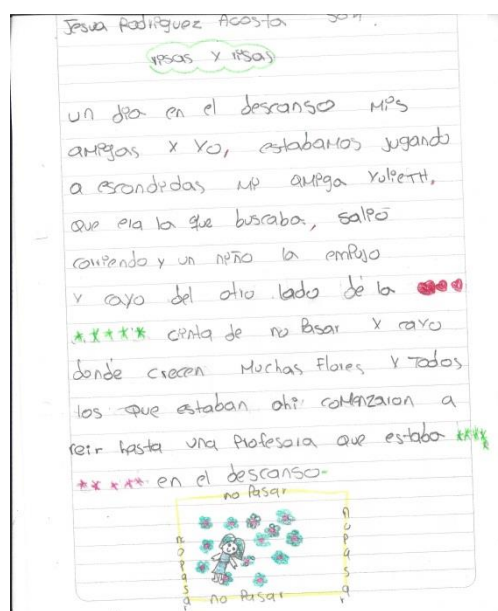 Jesua Rodriguez Acosta
risas y risas
un dia en el descanso Mis
amigas x Yo, estabamos jugando
a escondidas Mi amiga Yulieth,
que era la que buscaba, salio
corriendo y un niño la empujo
y cayo del otro lado de la
cinta de no Pasar x cayo
donde crecen Muchas Flores y Todos
los que estaban ahi comenzaron a
reir hasta una Profesora que estaba
en el descanso.
no Pasar
no pasar
no pasar
no Pasar